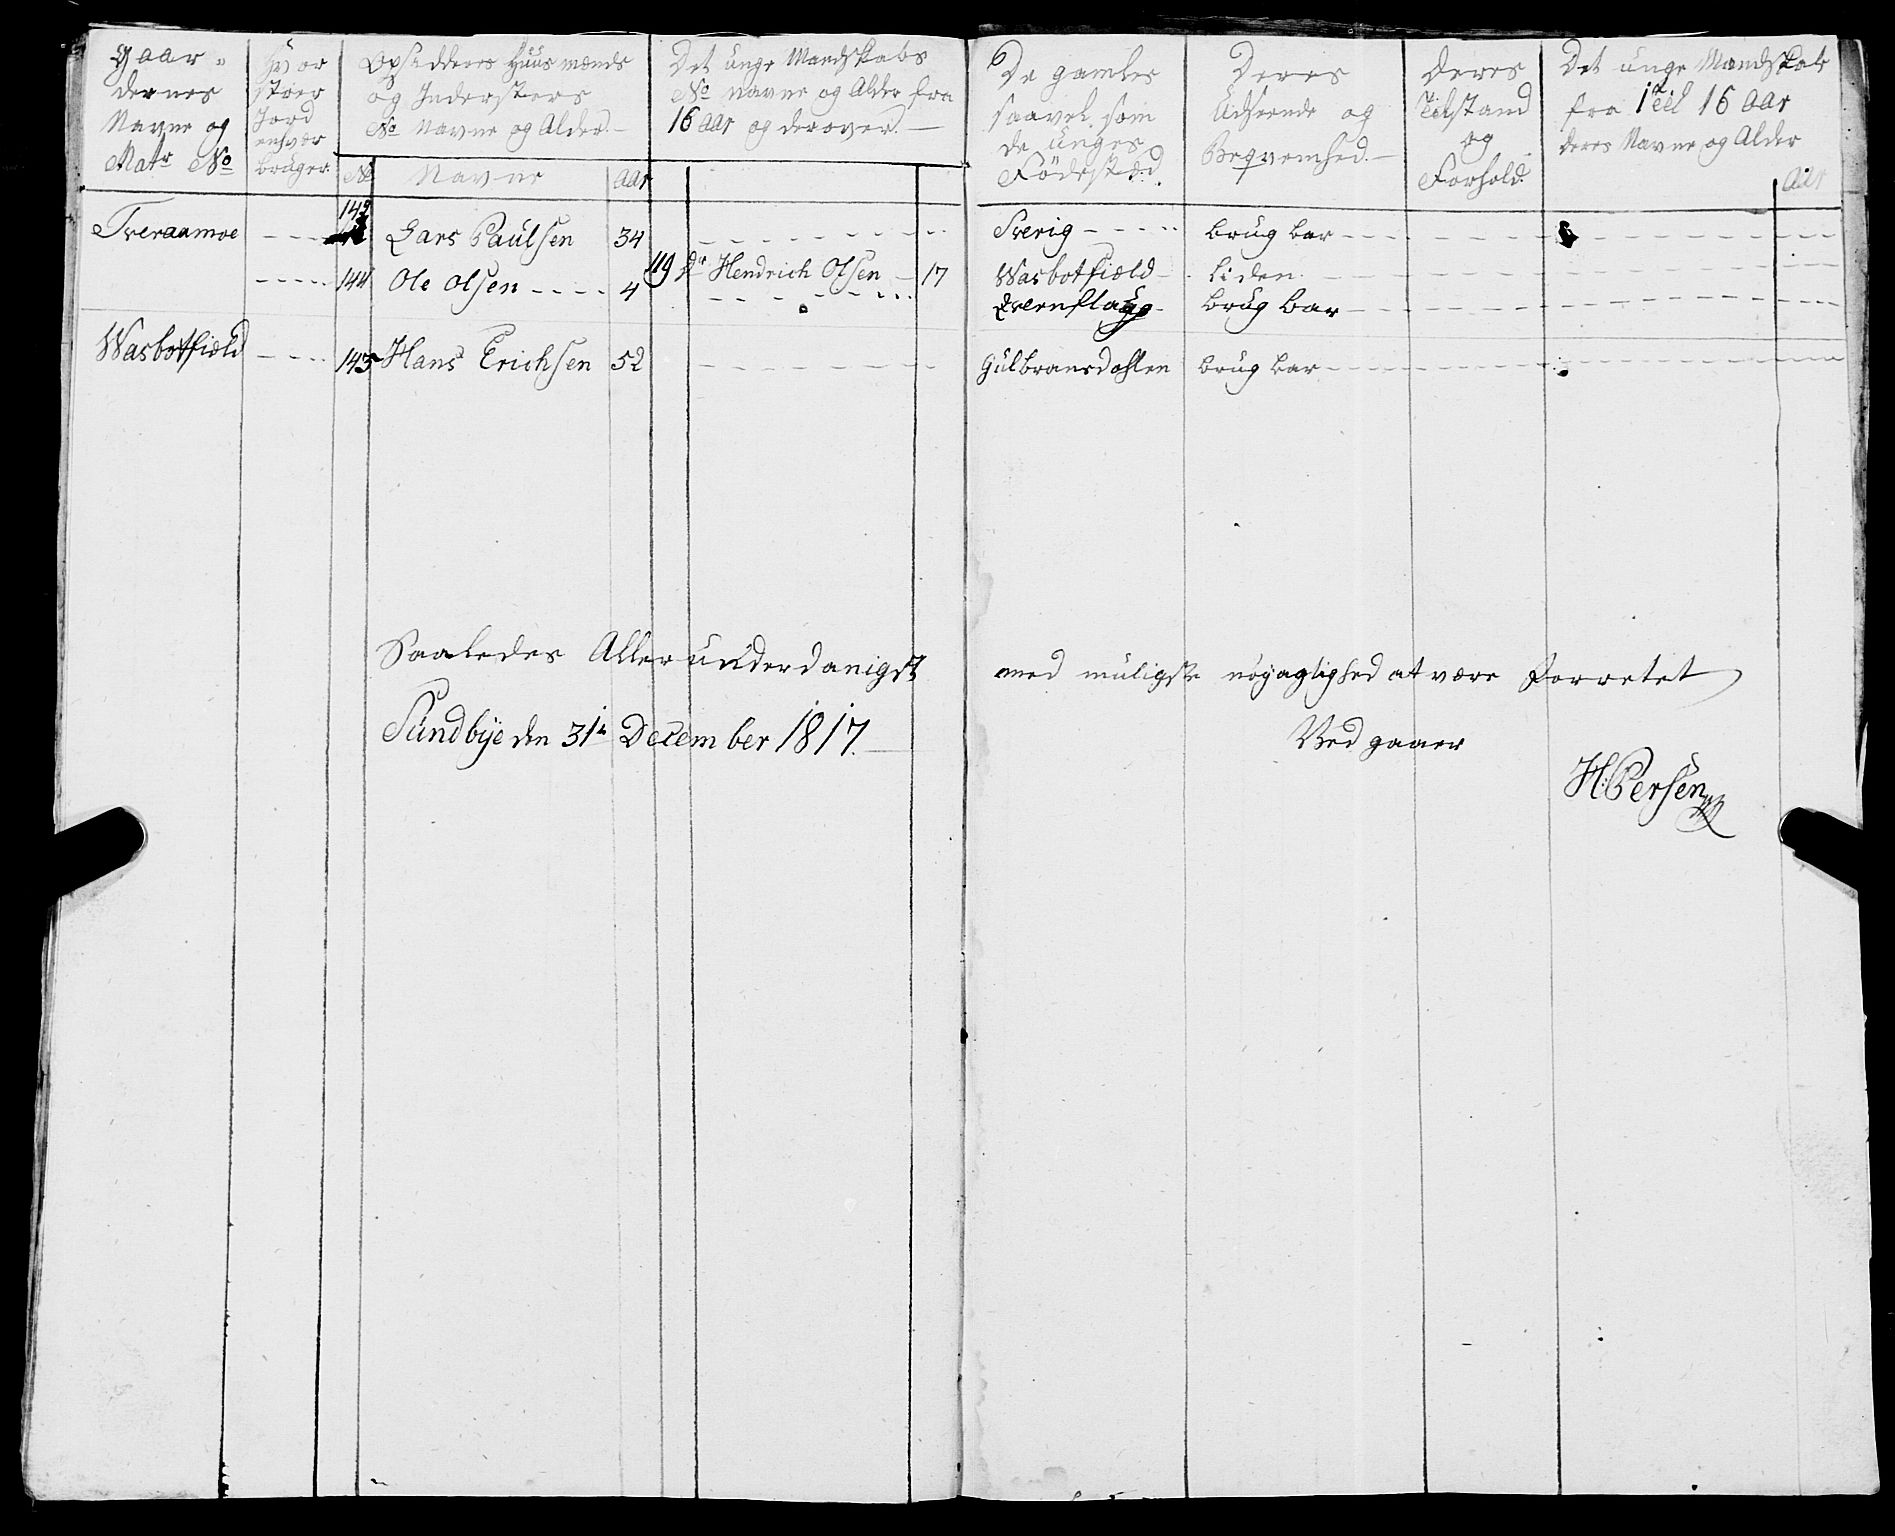 Gaar-
dernes
Navne og
Matr No
Hvor
stoer
Jord
enhver
bruger
Opsidderes Huusmænds
og Indersters
No Navne og Alder.
No Navne Aar
Det unge Mandskabs
No Navne og Alder fra
16 Aar og derover.
De gamles
saavel som
de unges
Födestæd.
Deres
Udseende og
Beqvemhed.
Deres
Tilstand
og
Forhold.
Det unge Mandskab
fra 1 til 16 Aar
deres Navne og Alder
Aar
Tveraamoe 142 Lars Paulsen 34 Sverig brugbar
119 Hendrich Olsen 17 Wasbotfield liden
144 Ole Olsen 4 brugbar
Wasbotfield 145 Hans Erichsen 52 Gulbransdahlen brugbar
Saaledes Allerunderdanigst med muligste nöyaglighed at være Forretet
Sundbye den 31te December 1817.
Ved gaaer
H: Persen